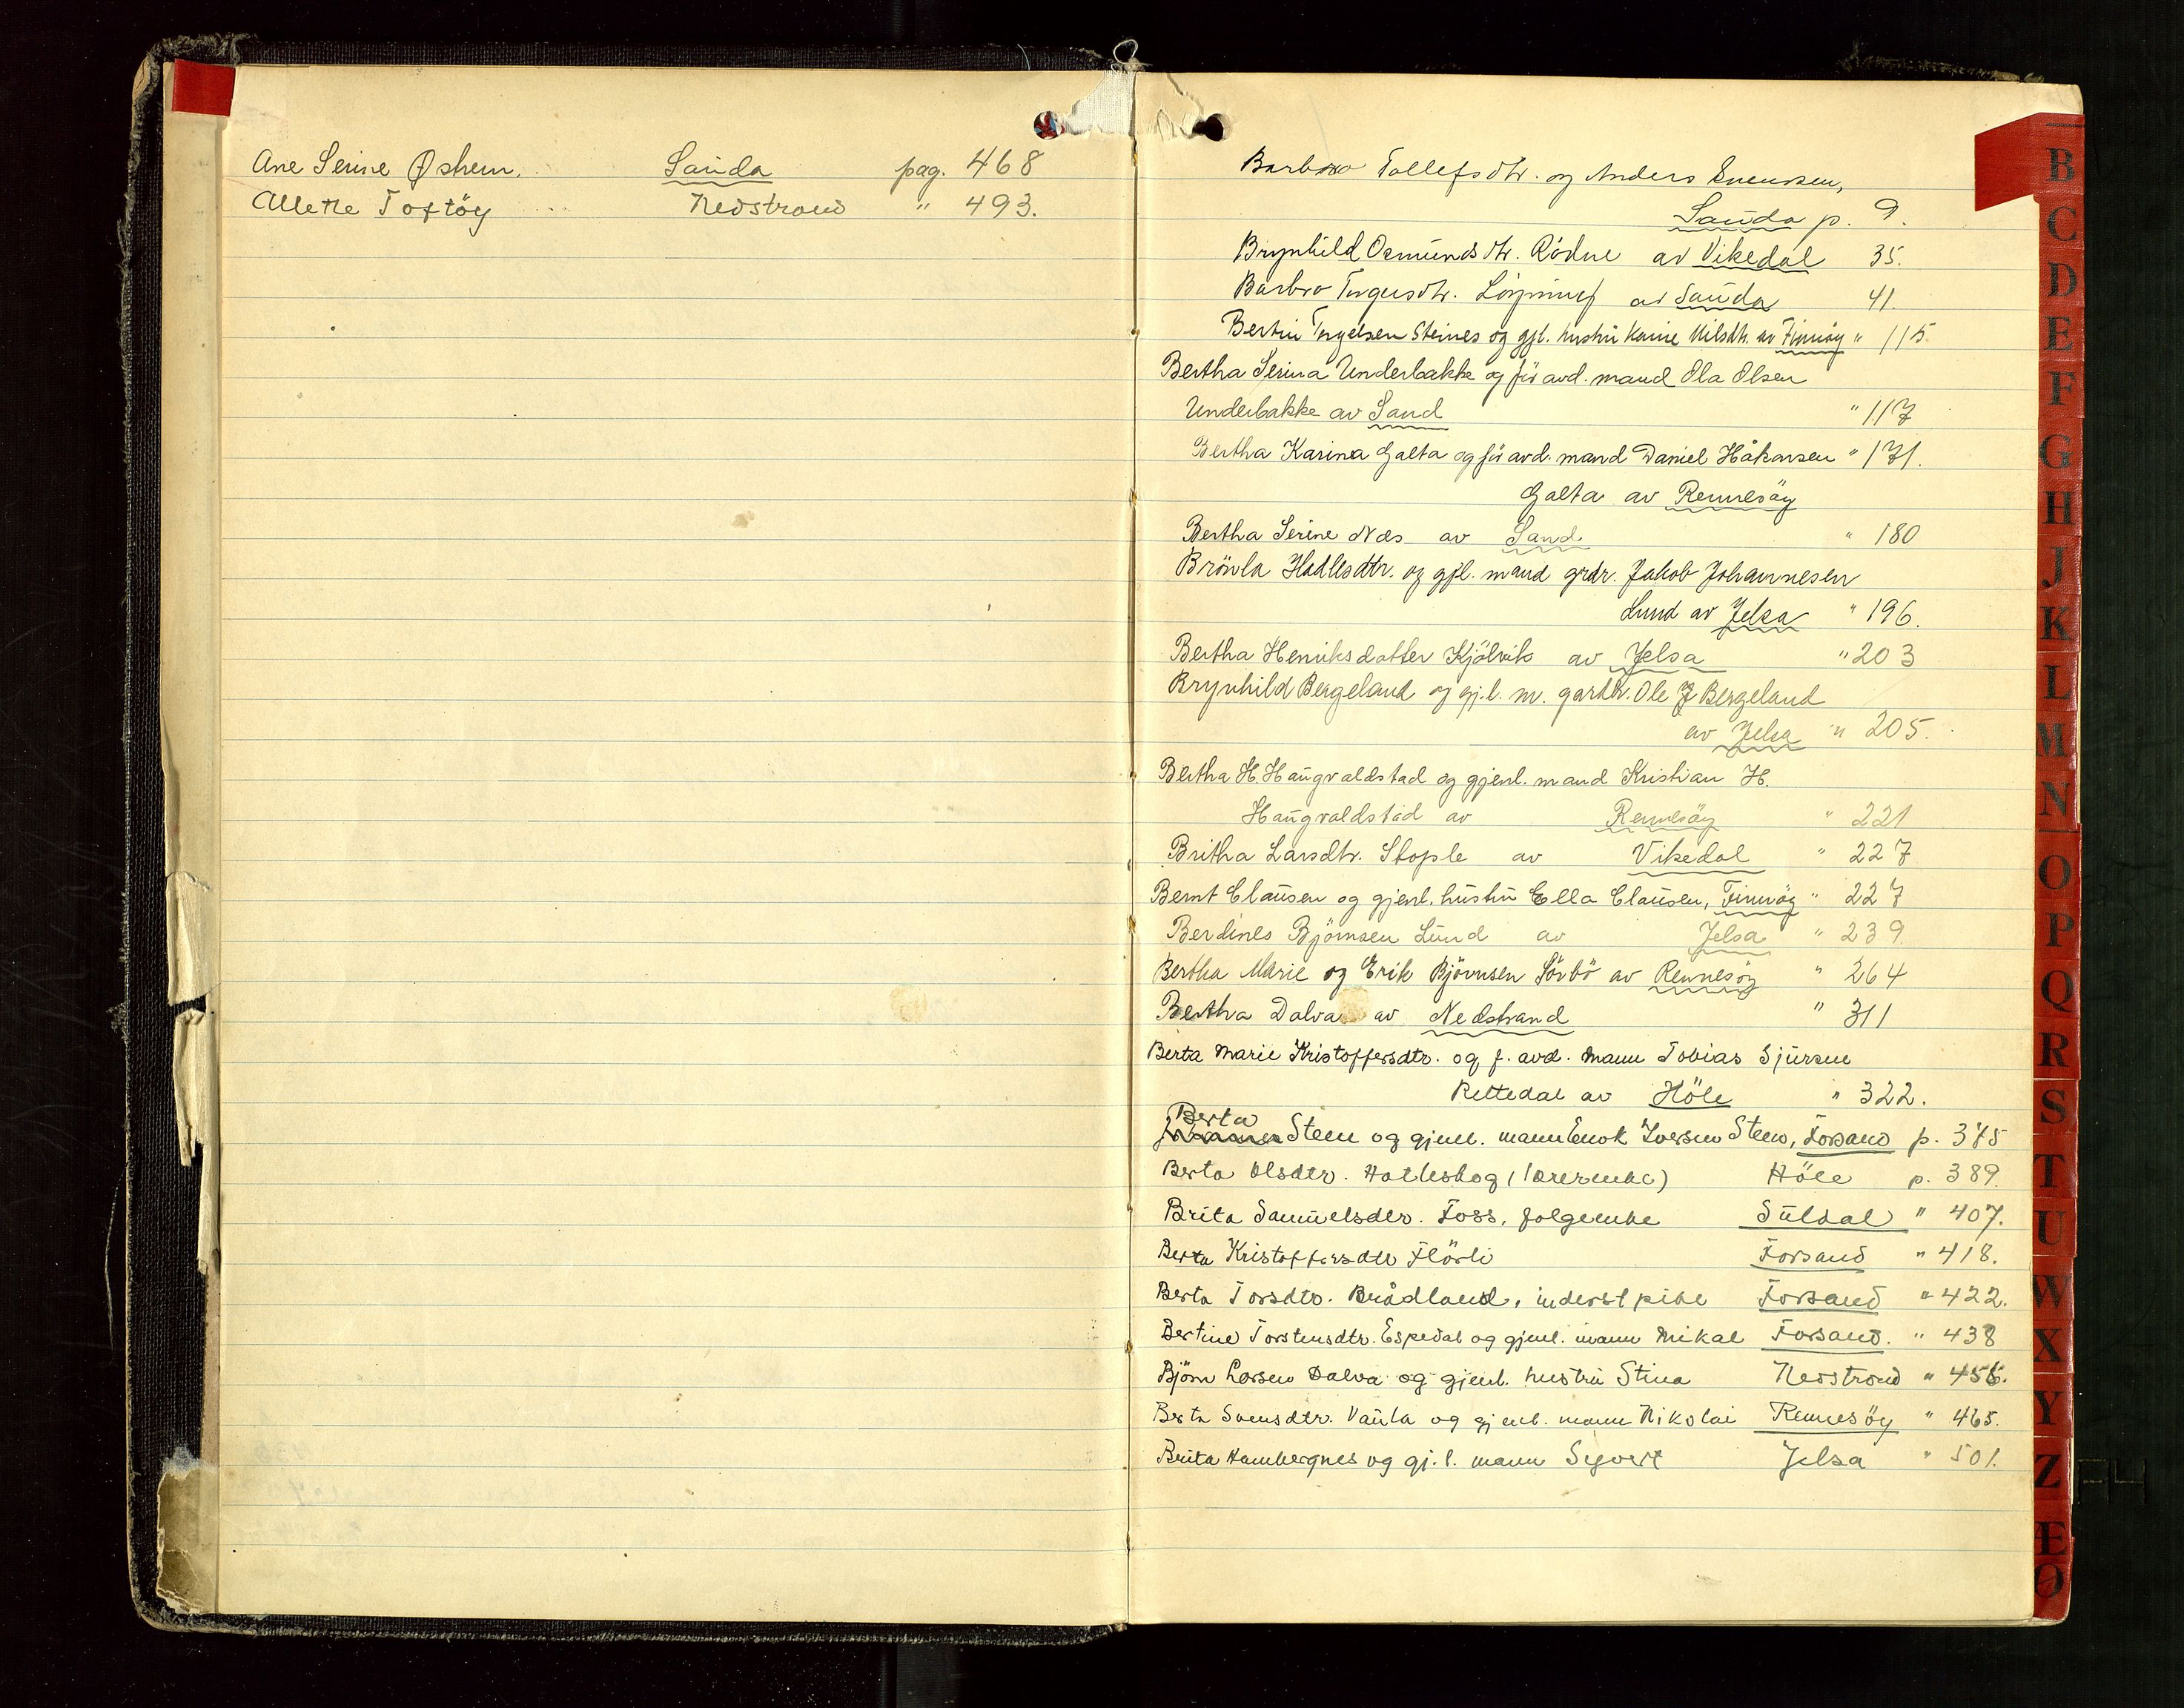 Ane Serine Øshem, Sauda pag. 468
Allette Toftöy Nedstrand " 493.
Barbro Tollefsdtr. og Anders Evensen,
Sauda p. 9.
Brynhild Osmundsdtr. Rödne av Vikedal 35.
Barbro Torgersdtr. av Sauda 41.
Bertin Torgelsen Steines og gjl. hustru Karine Nilsdtr. av Finnöy " 115
Bertha Serina Underbakke og för avd. mand Ola Olsen
Underbakke av Sand " 117
Bertha Karina Galta og för avd. mand Daniel Håkonsen " 171.
Galta av Rennesöy
Bertha Serine Næs av Sand " 180
Brönla Hadlesdtr. og gjl. mand grdr. Jakob Johannesen
Lund av Jelsa " 196.
Bertha Henriksdatter Kjölvik av Jelsa " 203
Brynhild Bergeland og gj.l. m. gardbr. Ole J Bergeland
av Jelsa " 205.
Bertha H. Haugvaldstad og gjenl. mand Kristian H.
Haugvaldstad av Rennesöy " 221
Britha Larsdtr. Stople av Vikedal " 227
Bernt Clausen og gjenl. hustru Ella Clausen, Finnöy " 227
Berdines Björnsen Lund av Jelsa " 239.
Bertha Marie og Erik Björnsen Sörbö av Rennesöy " 264
Bertha Dalva av Nedstrand " 311
Berta Marie Kristoffersdtr. og f. avd. mann Tobias Sjursen
Rettedal av Höle " 322.
Berta
Steen og gjenl. mann Enok Iversen Steen, Forsand p. 375
Berta Olsdtr. Hatleskog (lærerenke) Höle p. 389.
Brita Samuelsdtr. Foss, folgeenke Suldal " 407.
Berta Kristoffersdtr Flörli Forsand " 418.
Berta Torsdtr. Brådland, inderst pike Forsand " 422.
Bertine Torstensdtr. Espedal og gjenl. mann Mikal Forsand. " 438
Björn Larsen Dalva og gjenl. hustru Stina Nedstrand " 456.
Berta Svensdtr. Vaula og gjenl. mann Nikolai Rennesöy " 465.
Brita Hambergnes og gj.l. mann Syvert Jelsa " 501.
B
C
D
E
F
G
H
J
K
L
M
N
O
P
Q
R
S
T
U
W
X
Y
Z
Æ
Ø